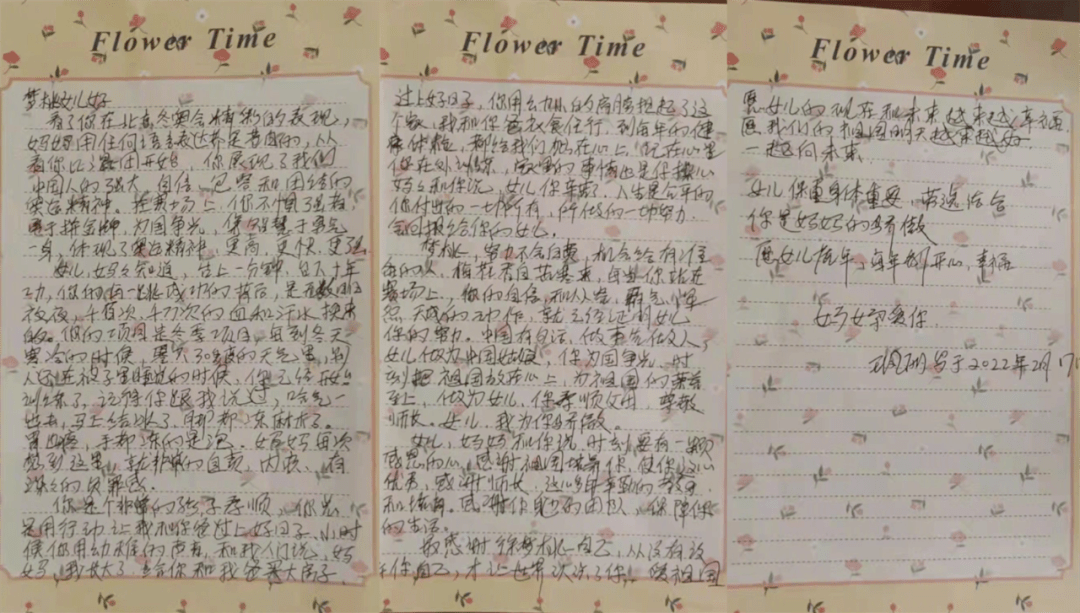 Flower Time
梦桃女儿好
看了你在北京冬奥会精彩的表现,
妈妈用任何语言表达都是苍白的,从
看你比赛开始,你展现了我们
中国人的强大、自信、包容和团结的
奥运精神。在赛场上,你不惧强者,
勇于拼金牌,为国争光,集智慧于勇气
一身,体现了奥运精神,更高,更快,更强
女儿,妈妈知道,台上一分钟,台下十年
功,你的每一跳成功的背后,是无数日日
夜夜,千百次,千万次的血和汗水换来
的。你的项目是冬季项目,每到冬天
寒冷的时候,零下30多度的天气里,别
人还在被子里睡觉的时候,你已经开始
训练了,记得你跟我说过,哈气一
出去,马上结冰了,脚都冻麻木了。
冒血疼,手都冻的是泡,妈妈每次
想到这里,就非常的自责,内疚,有
深深的负罪感。
你是个非常的孩子孝顺,你总
是用行动让我和你爸过上好日子,小时
候你用幼稚的声音,和我们说,妈
妈,我长大了,给你和我爸买大房子,
Flower Time
过上好日子,你用幼小的肩膀担起了这
个家,我和你爸衣食住行,到每年的健
康体检,都给我们放在心上,现在心里
你在外训练,家里的事情也是你操心
妈妈和你说,女儿你辛苦了,人生是公平的
你付出的一切所有,所做的一切努力,
会回报给你的女儿。
梦桃,努力不会白费,机会给有准
备的人,梅花香自苦寒来,每当你站在
赛场上,你的自信和从容,霸气,浑
然天成的动作,就已经证明女儿
你的努力。中国有句话,做事先做人,
女儿做为中国姑娘,你为国争光,时
刻把祖国放在心上,为祖国的荣誉
至上,做为女儿,你孝顺父母,尊敬
师长。女儿,我为你骄傲。
女儿,妈妈和你说,时刻要有一颗
感恩的心,感谢祖国培养你,使你这么
优秀,感谢师长,这么多年辛勤的教育
和培养。感谢你身边的团队,保障你
的生活。
最感谢徐梦桃自己,从没有放
弃你自己,才让世界记住了你,使祖国
Flower Time
愿女儿的现在和未来越来越幸福
愿我们的祖国明天越来越好
一起向未来
女儿保重身体重要,劳逸结合
你是妈妈的骄傲
愿女儿虎年,每年都开心,幸福
妈妈爱你
写于2022年2月17日